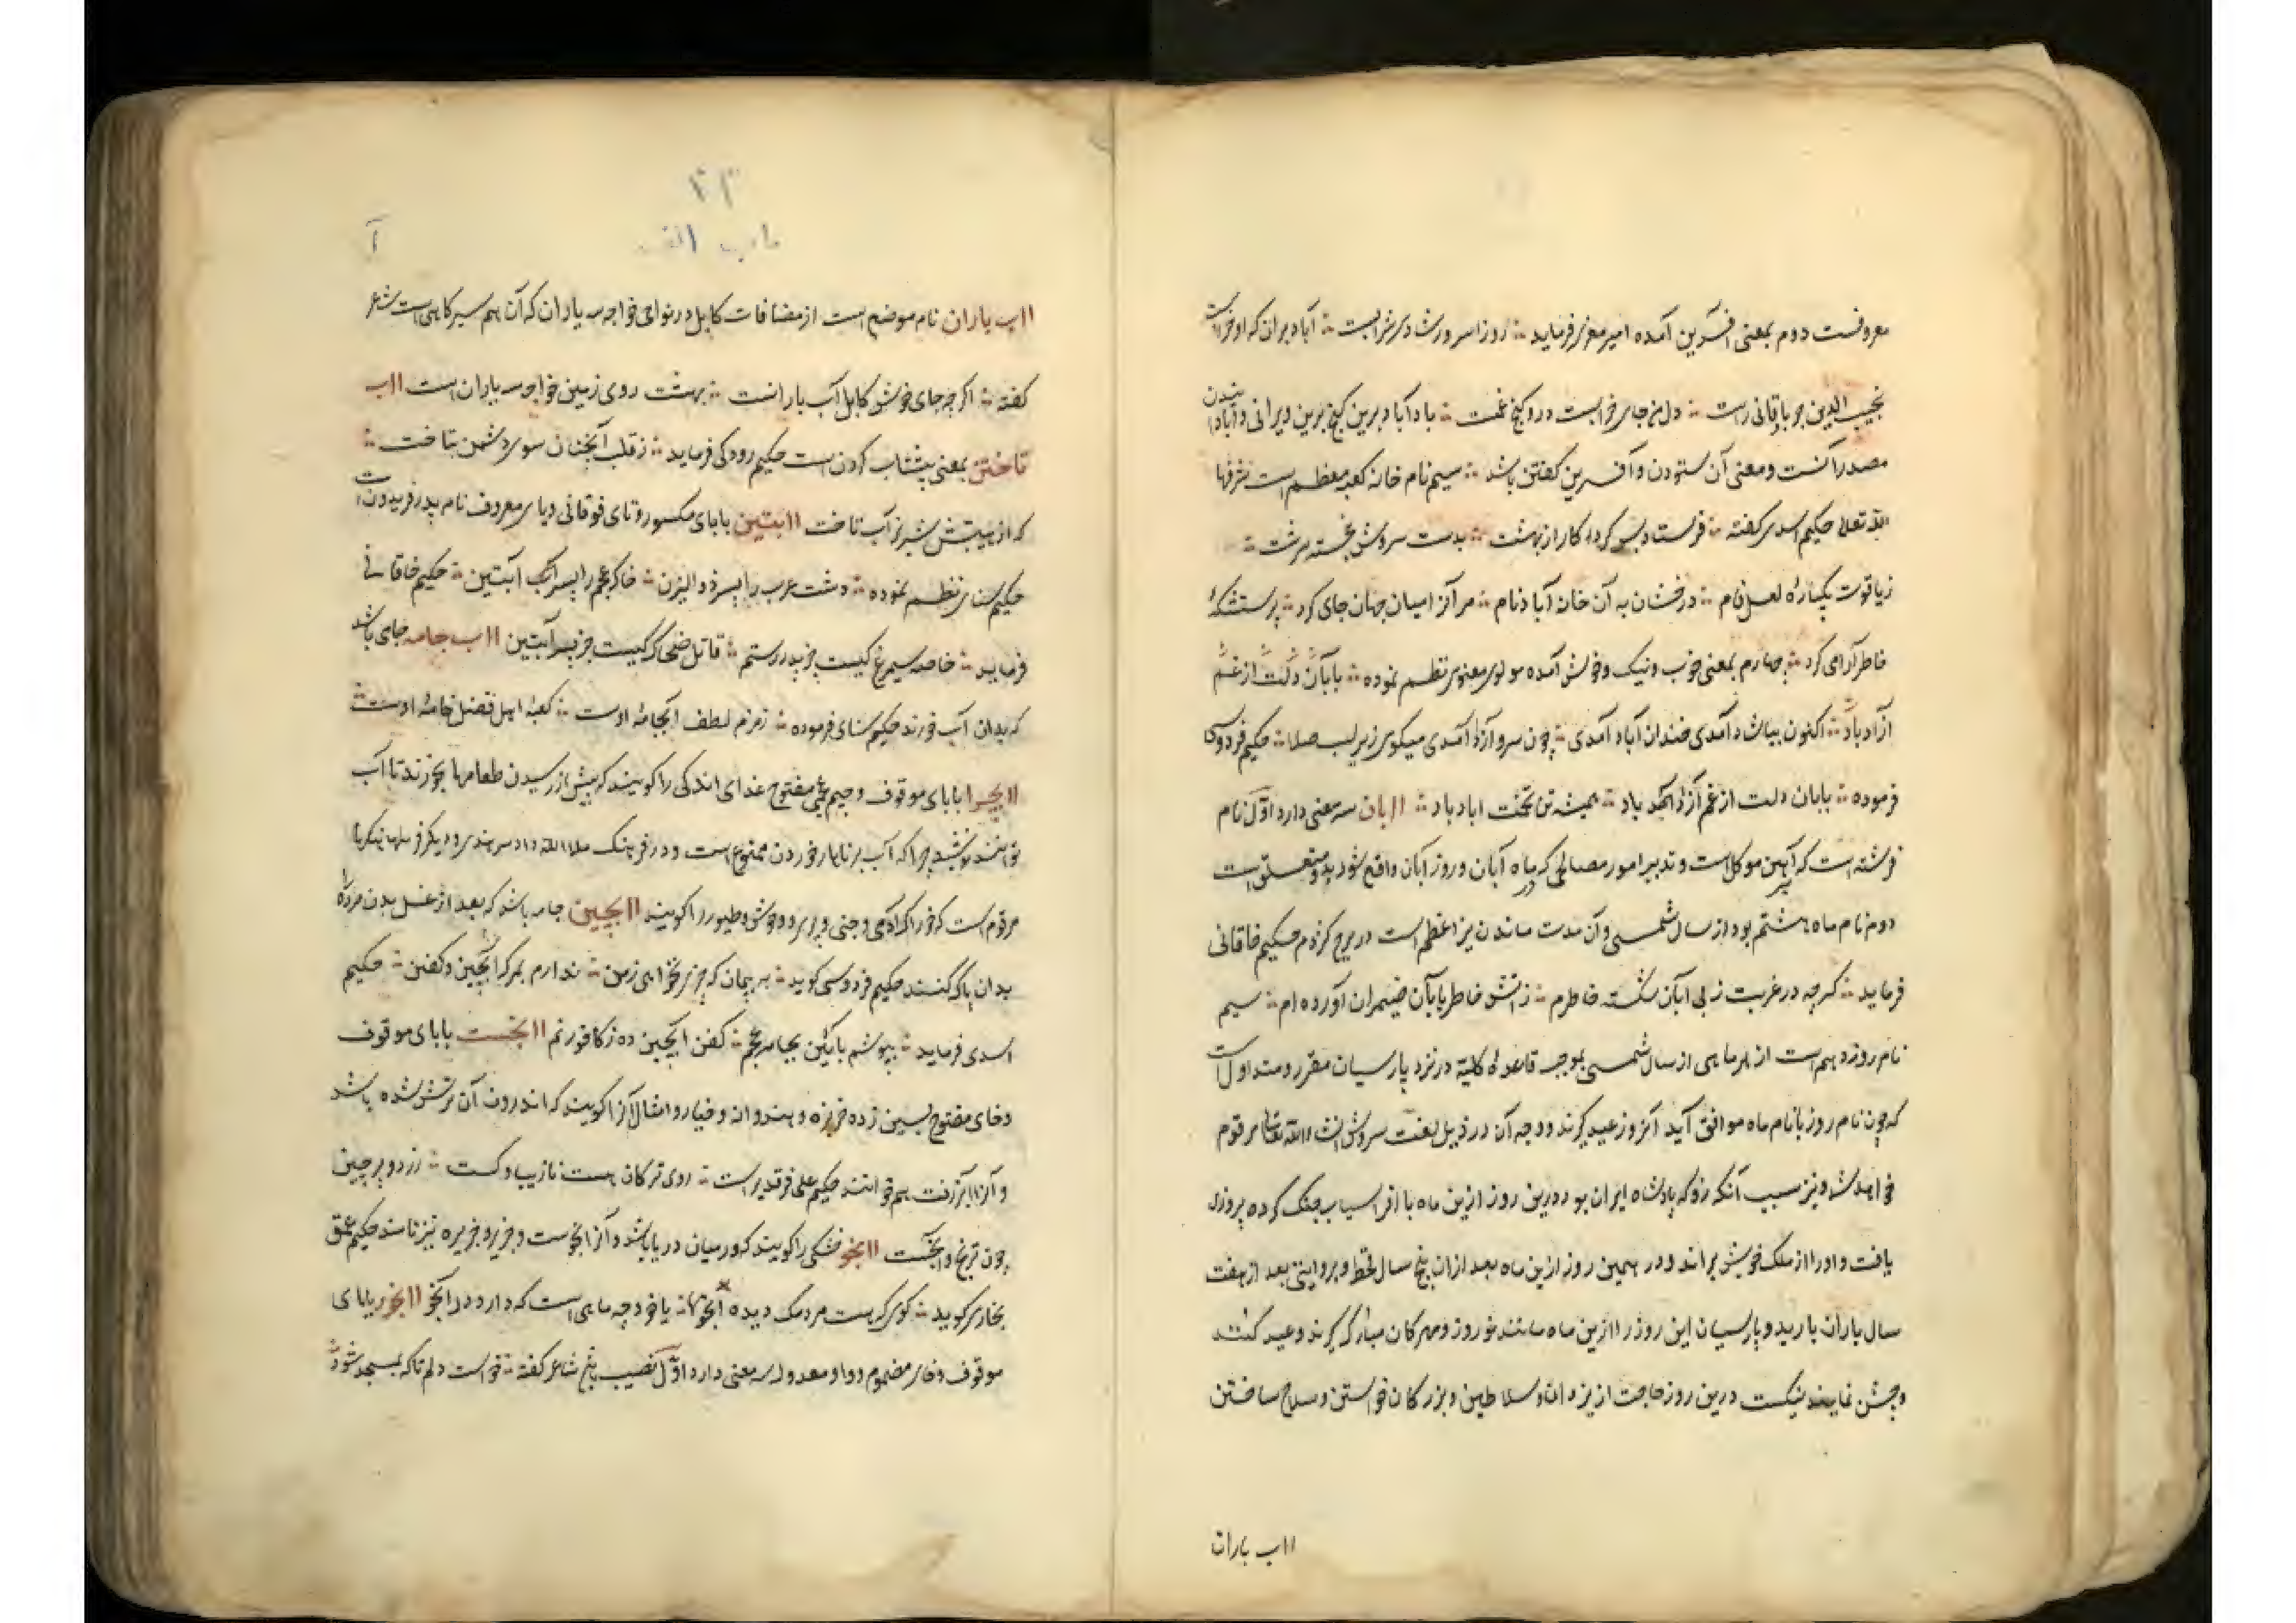 معروفست دوم بمعنی آفرین آمده امیر معزی فرماید ∴ روز اسرورشادی شرابست ∴ آباد بران که او خراب است
نجیب الدین جرباقانی راست ∴ دل من جای خرابست درو گنج غمت ∴ باد آباد برین گنج برین ویرانی و آبادیدن
مصدر آنست و معنی آن ستودن و آفرین گفتن باشد ∴ سیم نام خانه کعبه معظم است شرفها
الله تعالی حکیم اسدی گفته ∴ فرستاد بس کردگار از بهشت ∴ بدست سروش خجسته سرشت ∴
زیاقوت یکپاره لعل فام ∴ درخشان به آن خان آباد نام ∴ مر آنرا میان جهان جای کرد ∴ پرستشگه
خاطر آرامی کرد ∴ چهارم بمعنی خوب و نیک و خوش آمده مولوی معنوی نظم نموده ∴ بابان دلت از غم
آزاد باد ∴ اکنون بباش دآمدی خندان آباد آمدی ∴ چون سرو آزاد آمدی میکوی زیر لب صلا ∴ حکیم فردوسی
فرموده ∴ بابان دلت از غم آزاد باد ∴ همیشه تن تختت اباد باد ∴ اابان سه معنی دارد اوّل نام
فرشته است که بر آهن موکل است و تدبیر امور مصالحی که در ماه آبان و روز آبان واقع شود بدو متعلق است
دوم نام ماه هشتم بود از سال شمسی و آن مدت ماندن نیر اعظم است در برج کژدم حکیم خاقانی
فرماید ∴ گرچه در غربت ز بی آبان شکسته خاطرم ∴ ز آتش خاطر بابان ضیمران آورده ام ∴ سیم
نام روز دهم است از هر ماهی از سال شمسی بموجب قاعده کلیة در نزد پارسیان مقرر و متداول است
که چون نام روز با نام ماه موافق آید آنروز عید گیرند و وجه آن در ذیل لغت سروش انشاء الله تعالی مرقوم
خواهد شد و نیز سبب آنکه زو که پادشاه ایران بود درین روز ازین ماه با افراسیاب جنگ کرده پیروزی
یافت و اورا از ملک خویش براند و در همین روز ازین ماه بعد ازان پنج سال قحط و بروایتی بعد از هفت
سال باران بارید و پارسیان این روز را ازین ماه مانند نوروز و مهرکان مبارک گیرند و عید کنند
و جشن نمایند نیکست درین روز حاجت از یزدان و سلاطین و بزرکان خواستن و سلاح ساختن
ااب باران
۲۳
باب الف
آ
ااب باران نام موضع است از مضافات کابل در نواحی خواجه سه یاران که آن هم سیرکاهی است شاعر
گفته ∴ اگرچه جای خوش کابل آب بارانست ∴ بهشت روی زمین خواجه سه یاران است ااب
تاختن بمعنی پیشاب کردن است حکیم رودکی فرماید ∴ ز قلب آنچنان سوی دشمن بتاخت ∴
که از هیبتش شیر نر آب تاخت اابتین بابای مکسور و تای فوقانی و یای معروف نام پدر فریدون است
حکیم سنای نظم نموده ∴ دشت عرب را پسر ذوالیزن ∴ خاک عجم را پسر آبتین ∴ حکیم خاقانی
فرماید ∴ خاصه سیمرغ کیست جز پدر رستم ∴ قاتل ضحاک کیست جز پسر آبتین ااب جامه جای باشد
که بدان آب خورند حکیم سنای فرموده ∴ زمزم لطف ابجامهٔ اوست ∴ کعبهٔ اهل فضل خامهٔ اوست ∴
اابچرا بابای موقوف و جیم عجمی مفتوح غذای اندکی را گویند که پیش از رسیدن طعامها بخورند تا آب
توانند نوشید چرا که آب بر ناهار خوردن ممنوع است و در فرهنگ ملا الله داد سرهندی و دیگر فرهنگها
مرقوم است که خوراک آدمی و جنی و پری و وحوش و طیور را گویند اابچین جامه باشد که بعد از غسل بدن مرده را
بدان پاک کنند حکیم فردوسی گوید ∴ به پیمان که چیزی نخواهی زمن ∴ ندارم بمرگ آبچین و کفن ∴ حکیم
اسدی فرماید ∴ بپوشم بآئین بجامه عجم ∴ کفن آبچین ده ز کافور نم اابخست بابای موقوف
و خای مفتوح بسین زده خربزه و هندوانه و خیار و امثال آنرا گویند که اندرون آن ترش شده باشد
و آنرا ابزرفت هم خوانند حکیم علی فرقدی راست ∴ روی ترکان هست نازیبا و گست ∴ زرد و پرچین
چون ترنج و آبخست اابخو خشکی را گویند که در میان دریا باشد و آنرا آبخوست و جزیره نیز نامند حکیم عمعق
بخاری گوید ∴ گوی که هست مردمک دیده آبخو ∴ یا خود چه ماهی است که دارد در آبخو اابخور بابای
موقوف و خای مضموم و واو معدوله سه معنی دارد اوّل نصیب باشد شاعر گفته ∴ خواست دلم تا که بمسجد شود